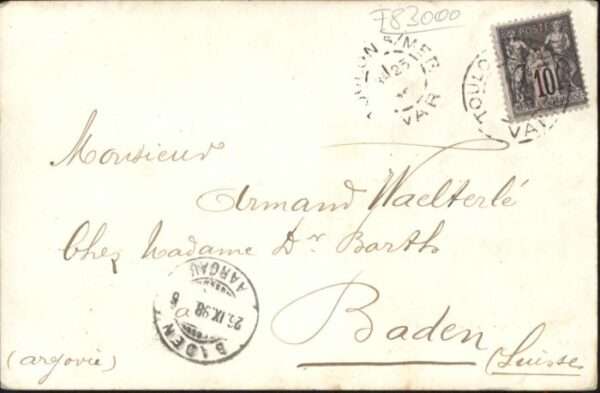 F83000
TOULON S/MER
25
VAR
TOULO
VAR
POSTE
10
Monsieur
Armand Waelterlé
Chez Madame Dr Barth
à Baden
(argovie) (Suisse
BADEN
26.IX.98
AARGAU